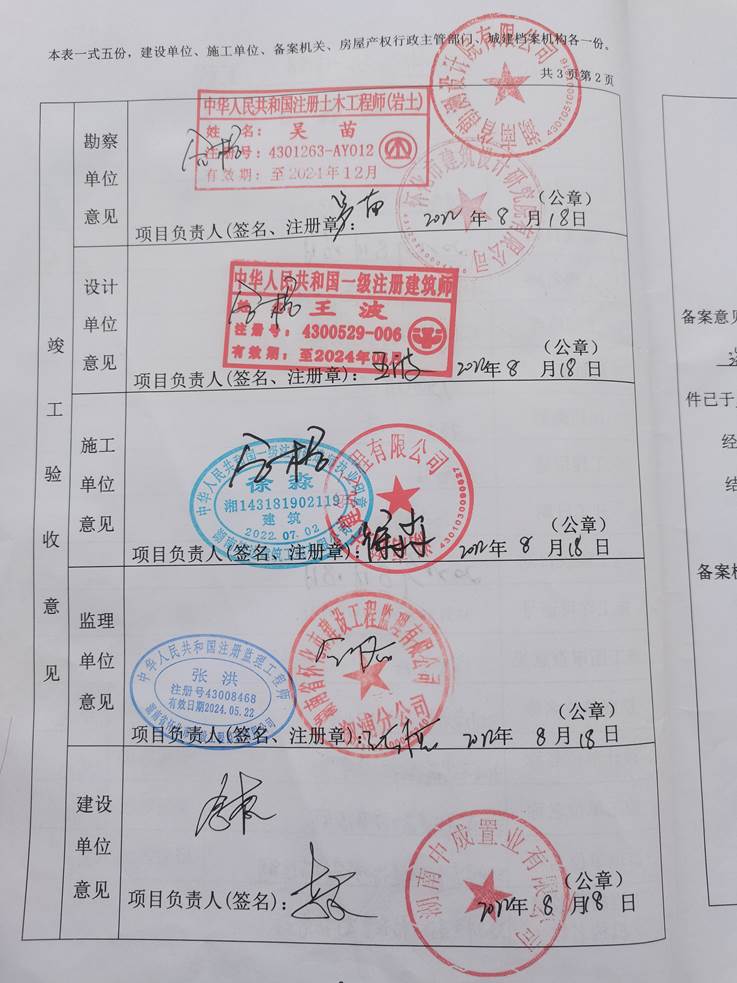 本表一式五份，建设单位、施工单位、备案机关、房屋产权行政主管部门、城建档案机构各一份。
共 3 页第 2 页
竣工验收意见
勘察单位意见
合格
中华人民共和国注册土木工程师(岩土)
姓 名： 吴 苗
注册号：4301263-AY012
有效期：至2024年12月
项目负责人(签名、注册章)：吴苗
（公章）
2022 年 8 月 18 日
怀化市建筑设计研究院有限公司
设计单位意见
合格
中华人民共和国一级注册建筑师
王 波
注册号：4300529-006
有效期：至2024年
项目负责人(签名、注册章)：王波
（公章）
2022年 8 月 18 日
施工单位意见
合格
徐淼
湘143181902119
建 筑
2022.07.02
程有限公司
4301030090827
项目负责人(签名、注册章)：徐淼
（公章）
2022 年 8 月 18 日
监理单位意见
合格
中华人民共和国注册监理工程师
张 洪
注册号43008468
有效日期2024.05.22
湖南省怀化市建设工程监理有限公司
溆浦分公司
项目负责人(签名、注册章)：
（公章）
2022年 8 月 18 日
建设单位意见
项目负责人(签名)：
湖南中成置业有限公司
（公章）
2022年 8 月 18 日
备案意见
件已于
经
结
备案机